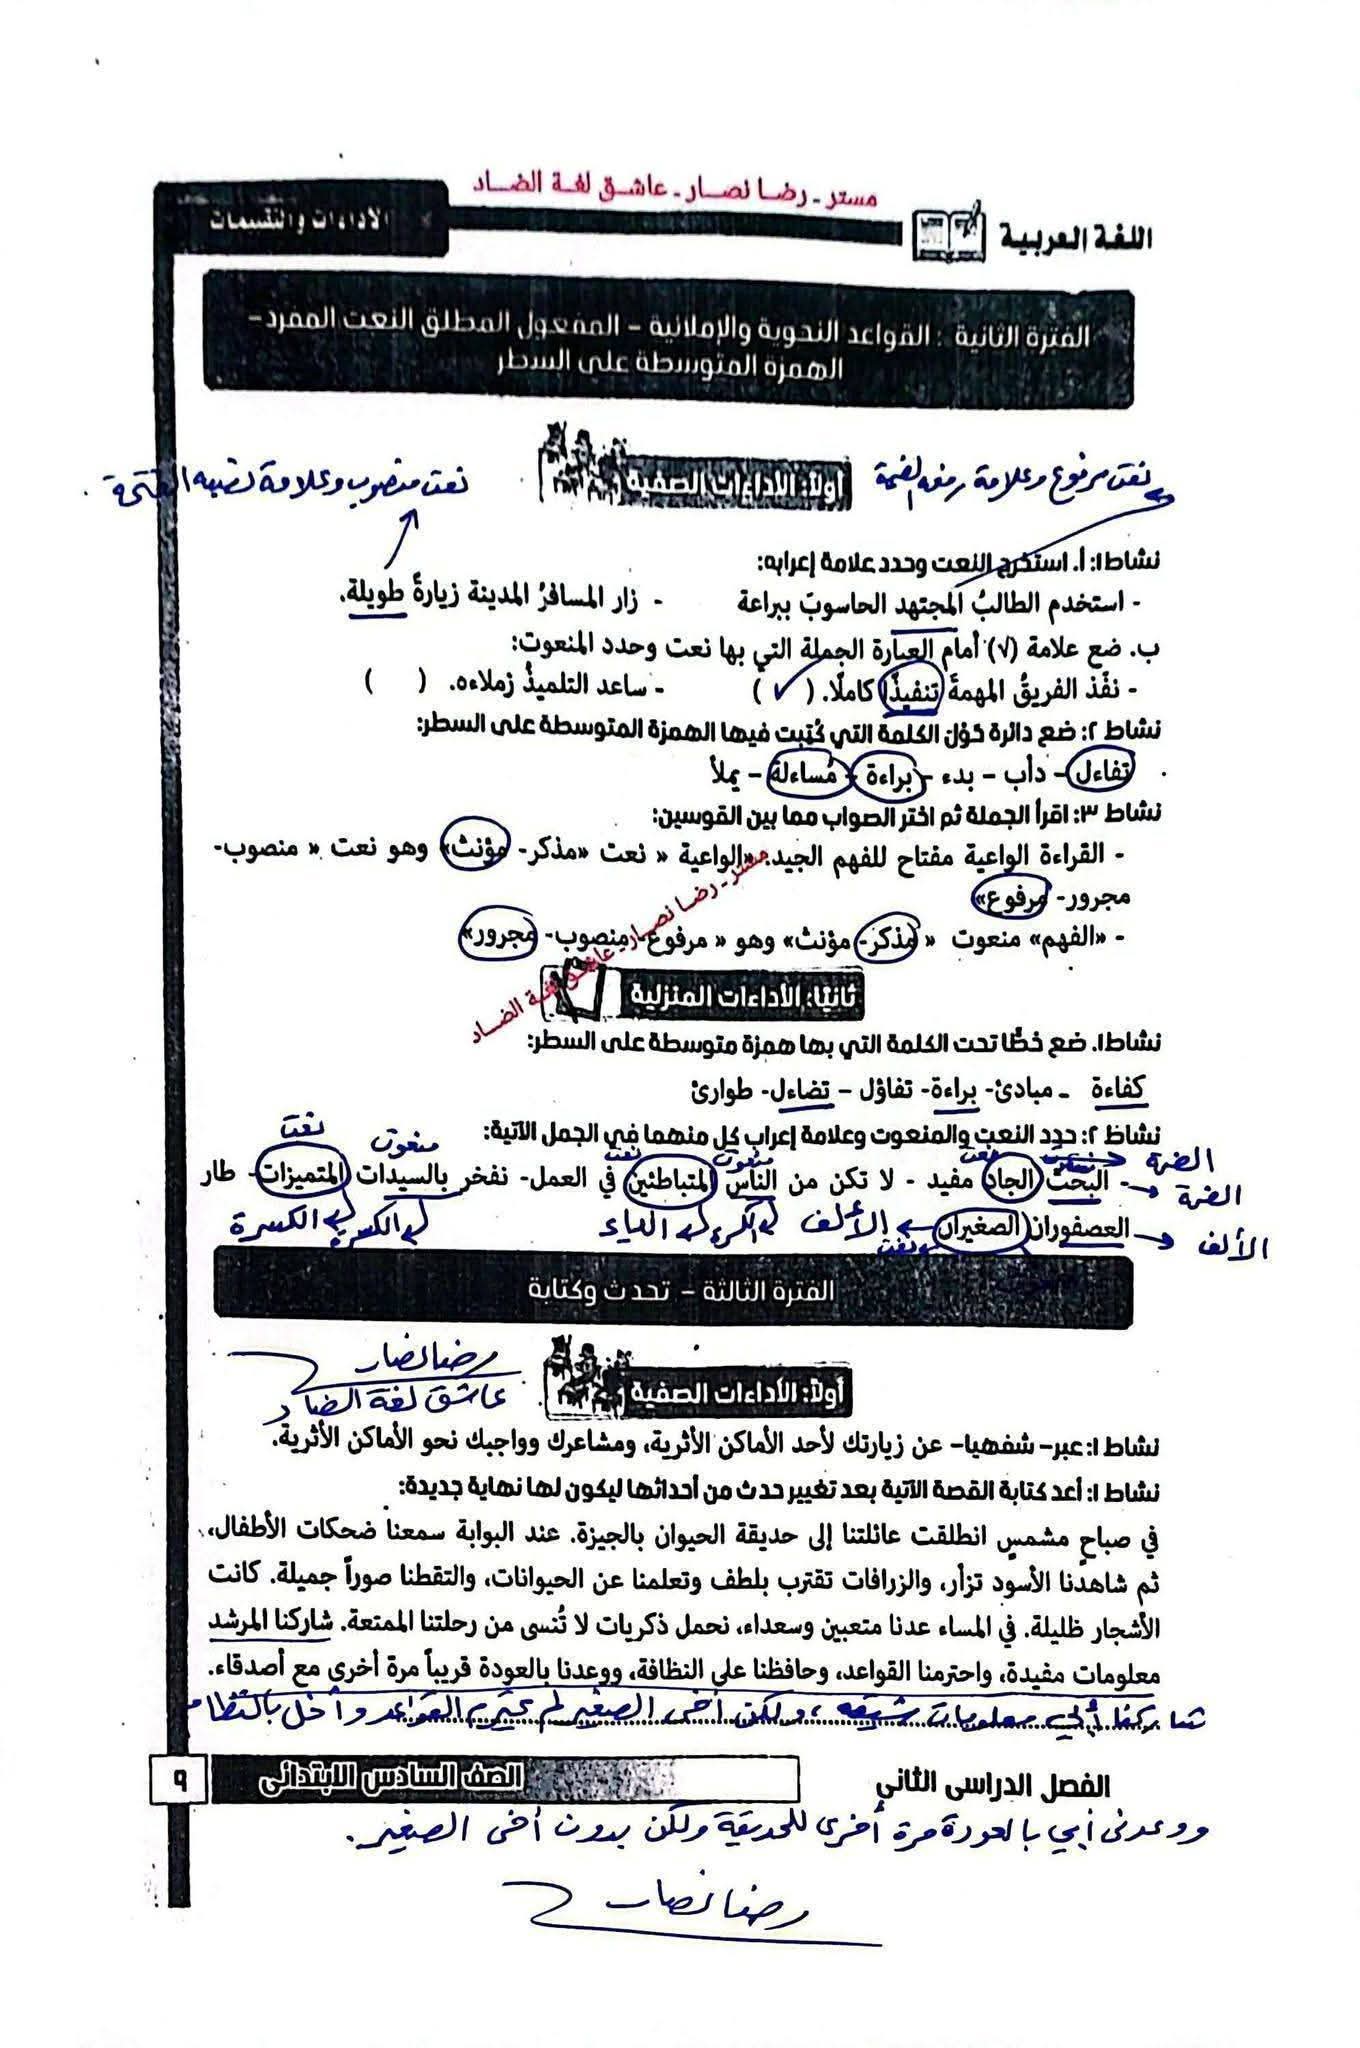 مستر - رضا نصار - عاشق لغة الضاد
اللغة العربية
الأداءات والتقييمات
الفترة الثانية : القواعد النحوية والإملائية - المفعول المطلق النعت المفرد -
الهمزة المتوسطة على السطر
أولاً: الأداءات الصفية
نعت مرفوع وعلامة رفعه الضمة
نعت منصوب وعلامة نصبه الفتحة.
نشاط ١: أ. استخرج النعت وحدد علامة إعرابه:
- استخدم الطالبُ المجتهد الحاسوبَ ببراعة - زار المسافرُ المدينة زيارةً طويلة.
ب. ضع علامة (√) أمام العبارة الجملة التي بها نعت وحدد المنعوت:
- نفّذ الفريقُ المهمةَ تنفيذًا كاملًا. ( ✓ ) - ساعد التلميذُ زملاءه. ( )
نشاط ٢: ضع دائرة حَوْل الكلمة التي كُتِبت فيها الهمزة المتوسطة على السطر:
تفاءل - دأب - بدء - براءة - مُساءلة - يملأ
نشاط ٣: اقرأ الجملة ثم اختر الصواب مما بين القوسين:
- القراءة الواعية مفتاح للفهم الجيد. «الواعية « نعت «مذكر- مؤنث» وهو نعت « منصوب-
مجرور- مرفوع»
- «الفهم» منعوت « مذكر- مؤنث» وهو « مرفوع- منصوب- مجرور»
مستر - رضا نصار - عاشق لغة الضاد
ثانيًا: الأداءات المنزلية
نشاط١. ضع خطًّا تحت الكلمة التي بها همزة متوسطة على السطر:
كفاءة - مبادئ- براءة- تفاؤل - تضاءل- طوارئ
نشاط ٢: حدد النعت والمنعوت وعلامة إعراب كل منهما في الجمل الآتية:
نعت منعوت نعت منعوت نعت الضمة
- البحثُ الجاد مفيد - لا تكن من الناس المتباطئين في العمل- نفخر بالسيدات المتميزات- طار
الضمة
العصفوران الصغيران
الألف الألف الكسرة الياء الكسرة الكسرة
نعت
الفترة الثالثة - تحدث وكتابة
رضا نصار
عاشق لغة الضاد
أولاً: الأداءات الصفية
نشاط ١: عبر- شفهيا- عن زيارتك لأحد الأماكن الأثرية، ومشاعرك وواجبك نحو الأماكن الأثرية.
نشاط ١: أعد كتابة القصة الآتية بعد تغيير حدث من أحداثها ليكون لها نهاية جديدة:
في صباحٍ مشمسٍ انطلقت عائلتنا إلى حديقة الحيوان بالجيزة. عند البوابة سمعنا ضحكات الأطفال،
ثم شاهدنا الأسود تزأر، والزرافات تقترب بلطف وتعلمنا عن الحيوانات، والتقطنا صوراً جميلة. كانت
الأشجار ظليلة. في المساء عدنا متعبين وسعداء، نحمل ذكريات لا تُنسى من رحلتنا الممتعة. شاركنا المرشد
معلومات مفيدة، واحترمنا القواعد، وحافظنا على النظافة، ووعدنا بالعودة قريباً مرة أخرى مع أصدقاء.
شاركنا أبي معلومات شيقه ، ولكن أخى الصغير لم يحترم القواعد وأخل بالنظام
الفصل الدراسى الثانى
الصف السادس الابتدائى
٩
ووعدنى أبي بالعودة مرة أخرى للحديقة ولكن بدون أخى الصغير.
رضا نصار